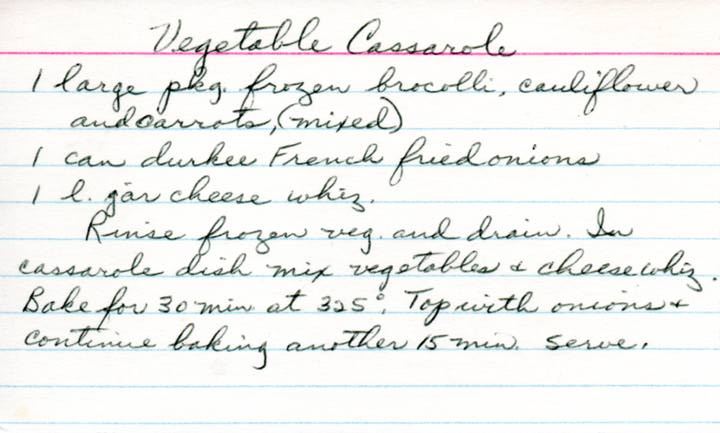 Vegetable Cassarole
1 large pkg. frozen brocolli, cauliflower
and carrots, (mixed)
1 can durkee French fried onions
1 l. jar cheese whiz.
Rinse frozen veg. and drain. In
cassarole dish mix vegetables & cheese whiz.
Bake for 30 min at 325°. Top with onions &
continue baking another 15 min. serve.